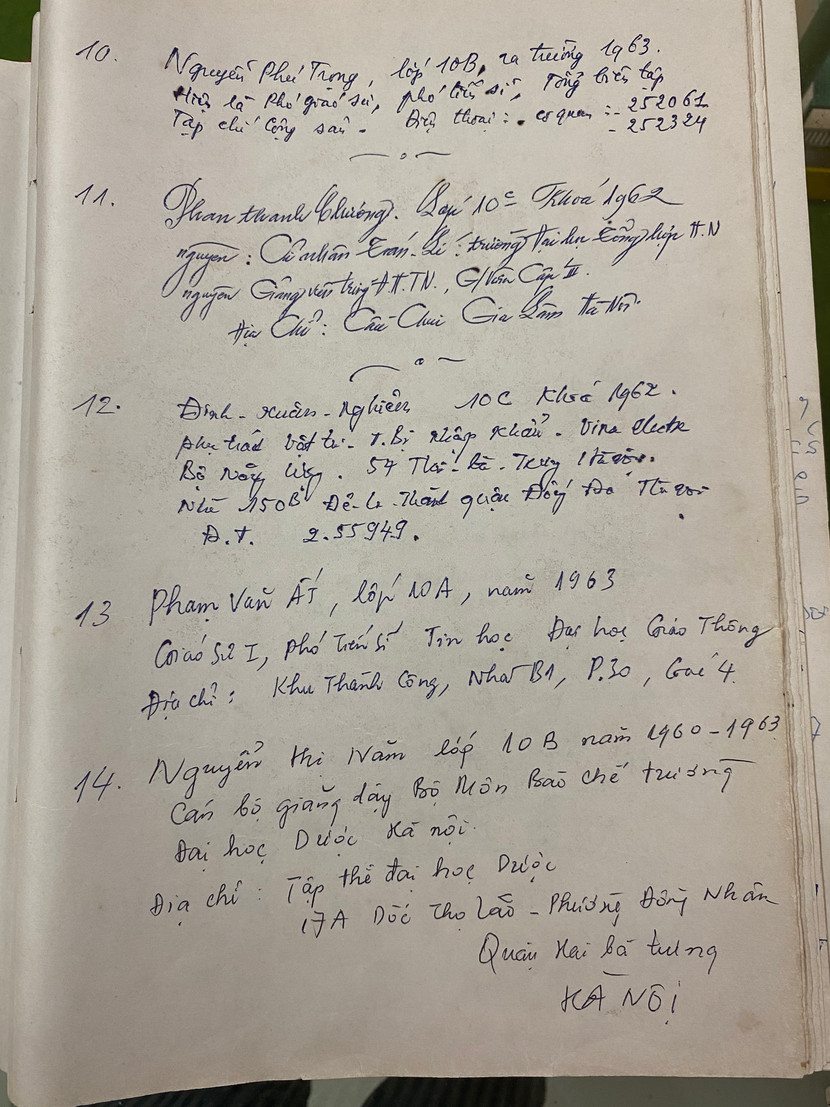 10. Nguyễn Phú Trọng, lớp 10B, ra trường 1963.
Hiện là Phó giáo sư, phó tiến sĩ, Tổng biên tập
Tạp chí Cộng sản. Điện thoại: cơ quan: - 252061
- 252324
11. Phan thanh Chương. Lớp 10C Khoá 1962
nguyên: Cử nhân Toán-Lí: trường Đại học Tổng hợp H.N
nguyên Giảng viên trường ĐH.TN., G/Viên Cấp III.
Địa Chỉ: Cầu Chui Gia Lâm Hà Nội.
12. Đinh - Xuân - Nghiêm 10C Khoá 1962.
phụ trách vật tư - T.Bị nhập khẩu - Vina electr
Bộ Năng lượng. 54 Hai - Bà - Trưng Hà nội.
Nhà 150B Đê-La-Thành quận Đống Đa Hà nội
Đ.T. 2.55949.
13 Phạm Văn ẤT, lớp 10A, năm 1963
Giáo sư I, phó Tiến sĩ Tin học Đại học Giao Thông
Địa chỉ: Khu Thành Công, Nhà B1, P.30, Gác 4.
14. Nguyễn thị Năm lớp 10B năm 1960-1963
Cán bộ giảng dậy Bộ Môn Bào chế trường
Đại học Dược Hà nội.
Địa chỉ: Tập thể đại học Dược
17A Dốc Thọ Lão - Phường Đông Nhân
Quận Hai bà trưng
HÀ NỘI